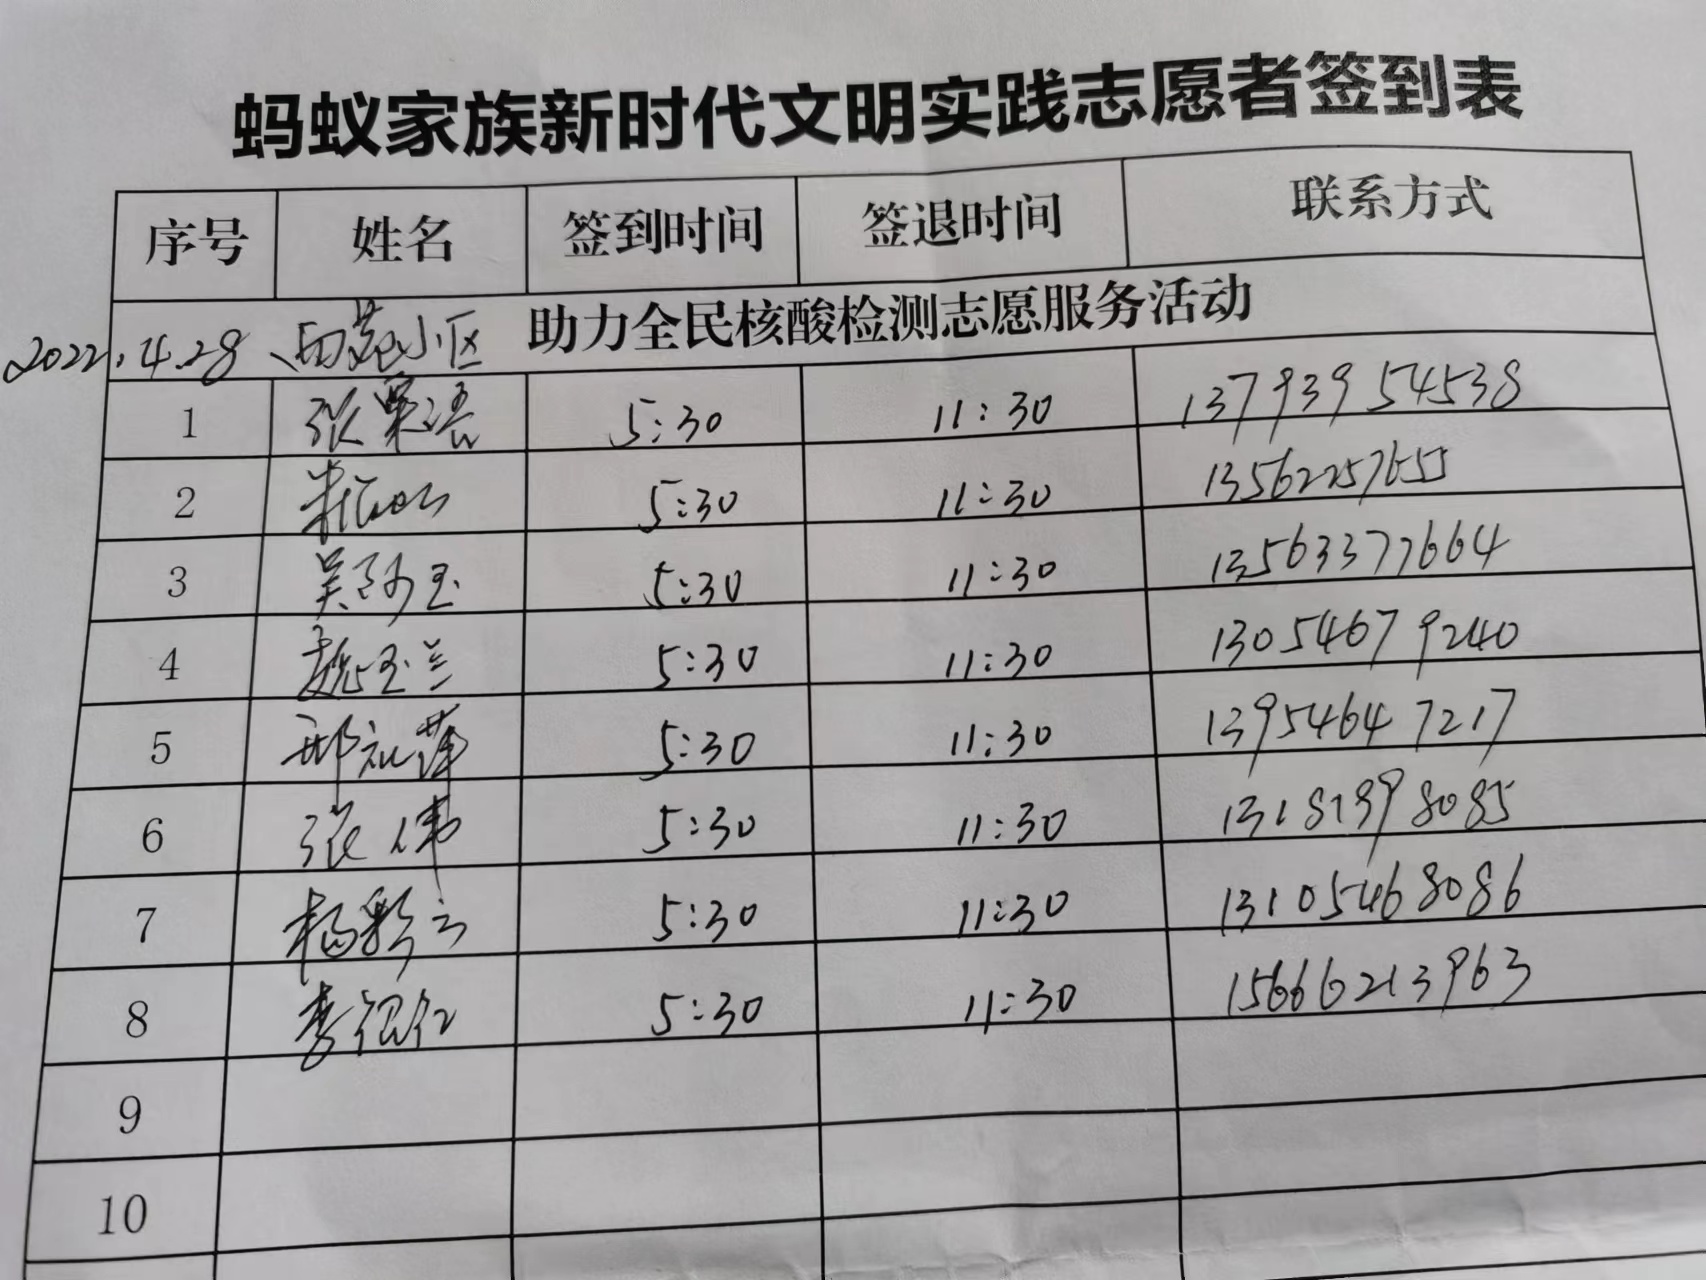 蚂蚁家族新时代文明实践志愿者签到表
序号 姓名 签到时间 签退时间 联系方式
助力全民核酸检测志愿服务活动
2022.4.28、田苑小区
1 张 5:30 11:30 13793954538
2 5:30 11:30 13562257655
3 吴 玉 5:30 11:30 13563377664
4 魏玉兰 5:30 11:30 13054679240
5 邢 萍 5:30 11:30 13954647217
6 张伟 5:30 11:30 13181998085
7 杨彩云 5:30 11:30 13105468086
8 李银红 5:30 11:30 15666213963
9
10